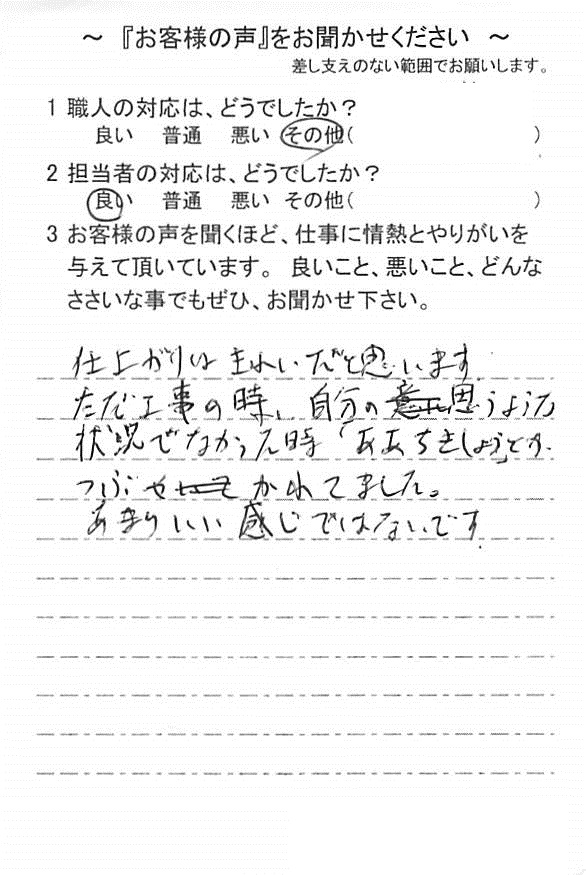 ～ 『お客様の声』をお聞かせください ～
差し支えのない範囲でお願いします。
1 職人の対応は、どうでしたか？
良い 普通 悪い その他( )
2 担当者の対応は、どうでしたか？
良い 普通 悪い その他( )
3 お客様の声を聞くほど、仕事に情熱とやりがいを
与えて頂いています。 良いこと、悪いこと、どんな
ささいな事でもぜひ、お聞かせ下さい。
仕上がりはきれいだと思います。
ただ工事の時、自分の思うような
状況でなかった時「ああちきしょう」とか
つぶやかれてました。
あまりいい感じではないです。